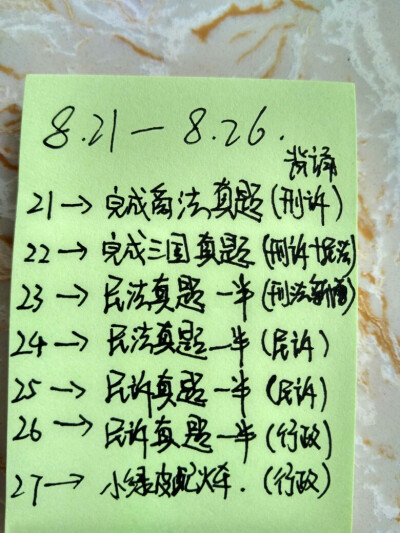 8.21—8.26.
背诵
21→完成商法真题(刑诉)
22→完成三国真题(刑诉+民法)
23→民法真题一半(刑法新增)
24→民法真题一半(民诉)
25→民诉真题一半(民诉)
26→民诉真题一半(行政)
27→小绿皮配火车.(行政)